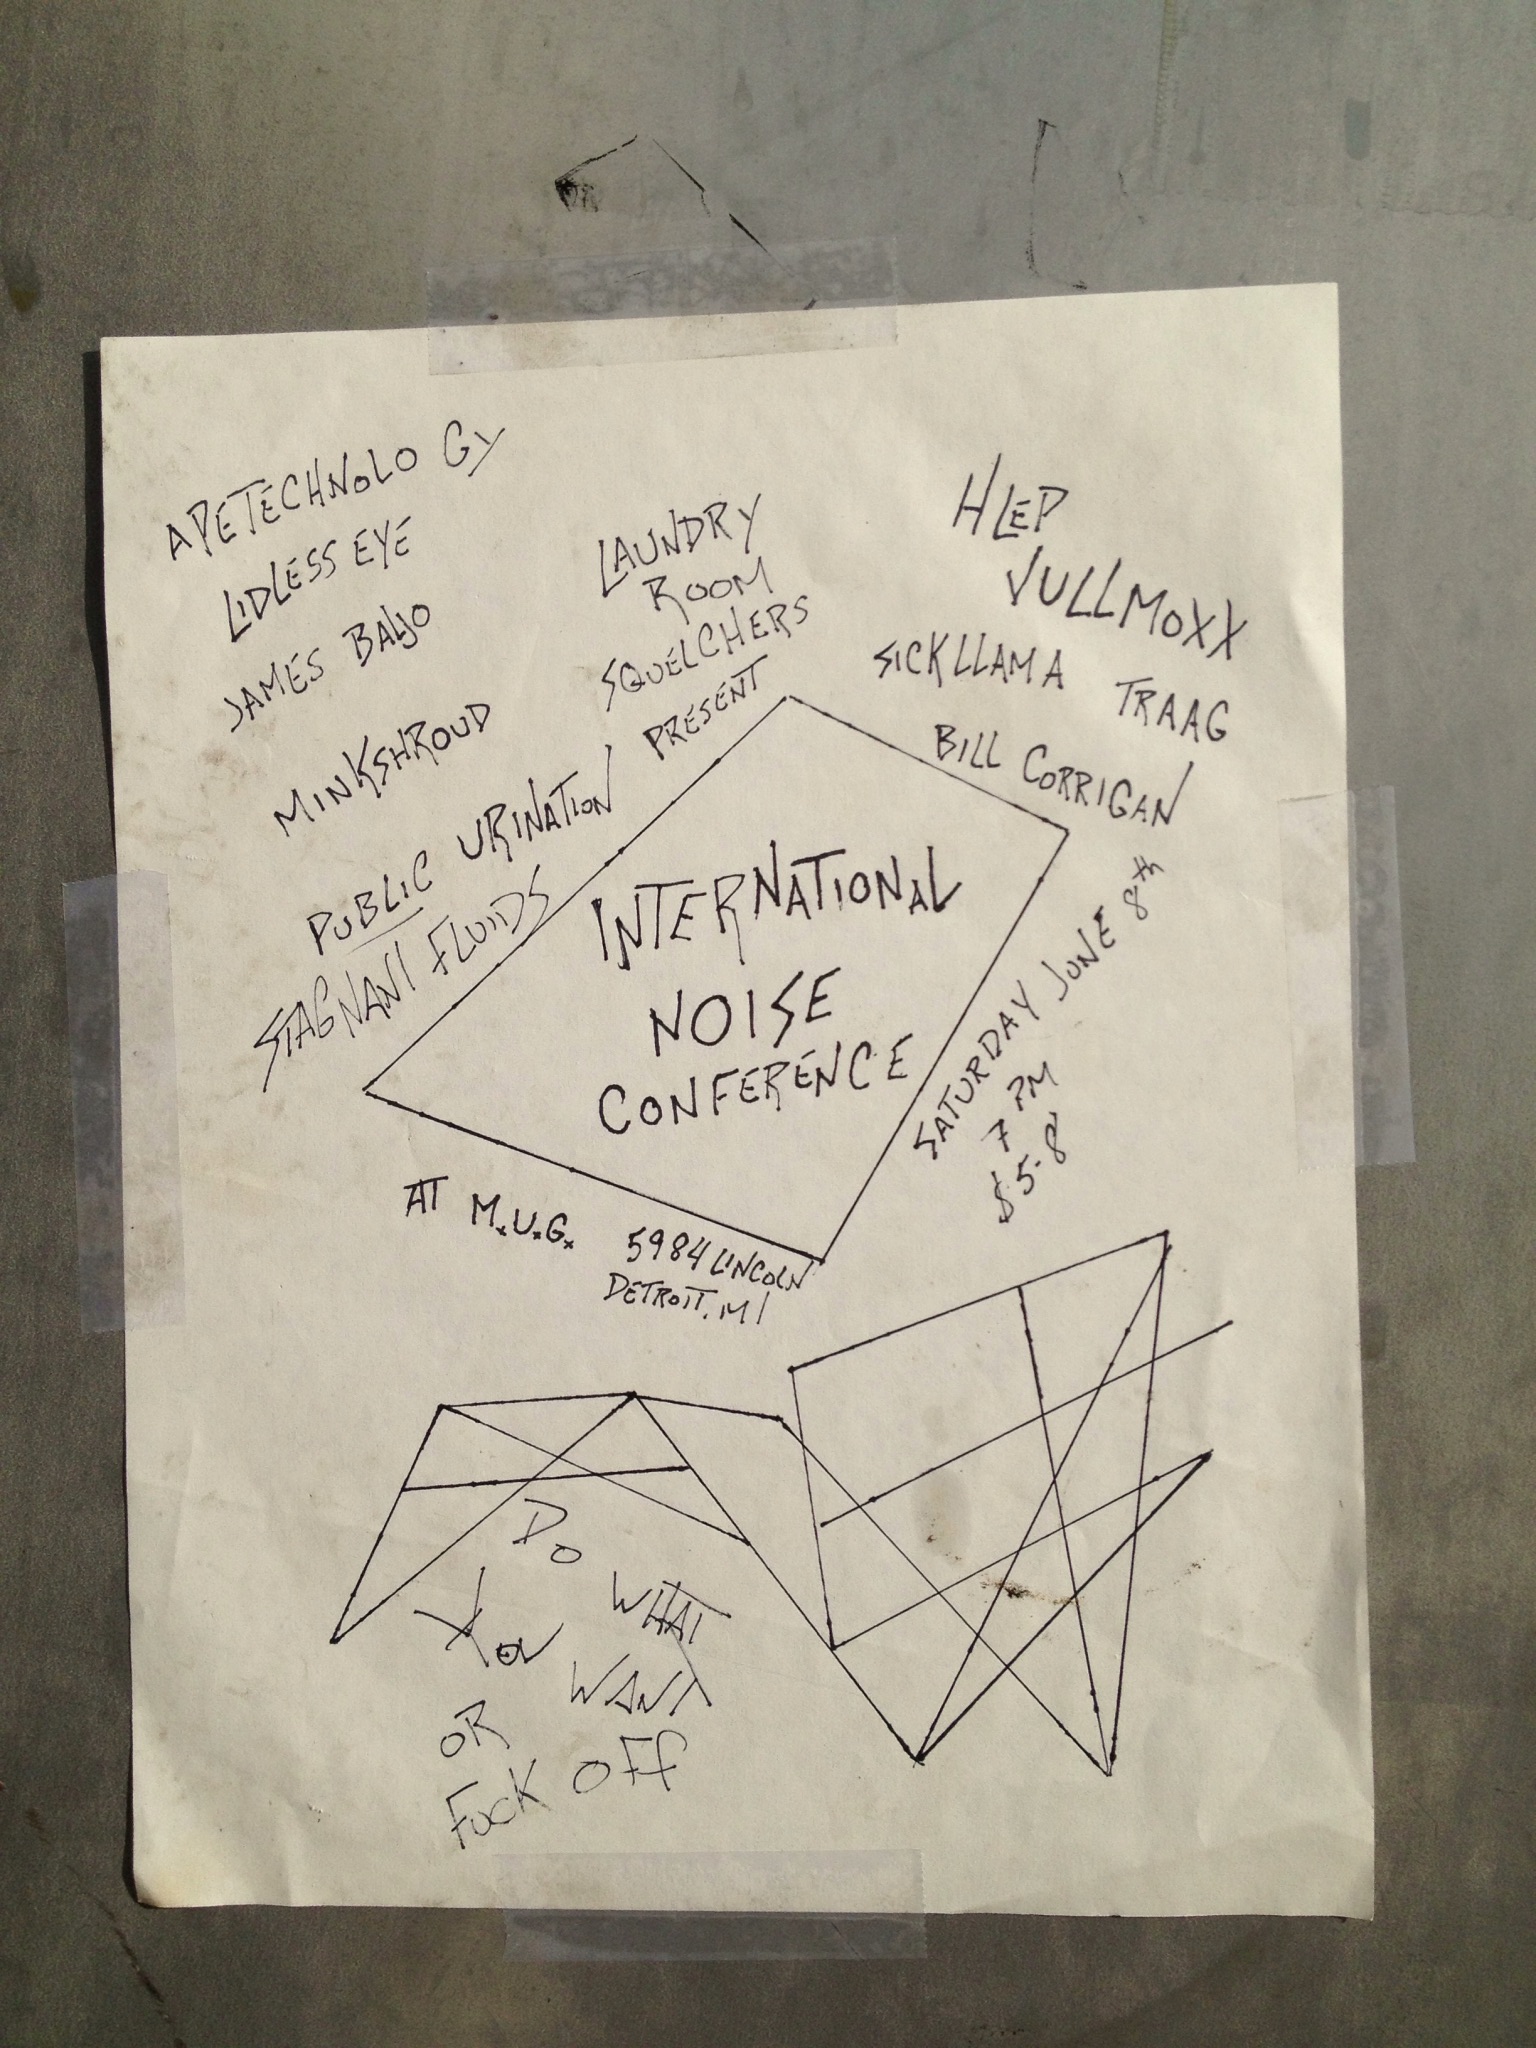 APETECHNOLOGY
LIDLESS EYE
JAMES BALJO
MINKSHROUD
PUBLIC URINATION
STAGNANT FLUIDS
LAUNDRY
ROOM
SQUELCHERS
PRESENT
HLEP
VULLMOXX
SICKLLAMA TRAAG
BILL CORRIGAN
INTERNATIONAL
NOISE
CONFERENCE
SATURDAY JUNE 8th
7 PM
$5-8
AT M.U.G. 5984 LINCOLN
DETROIT. MI
DO WHAT
YOU WANT
OR
FUCK OFF